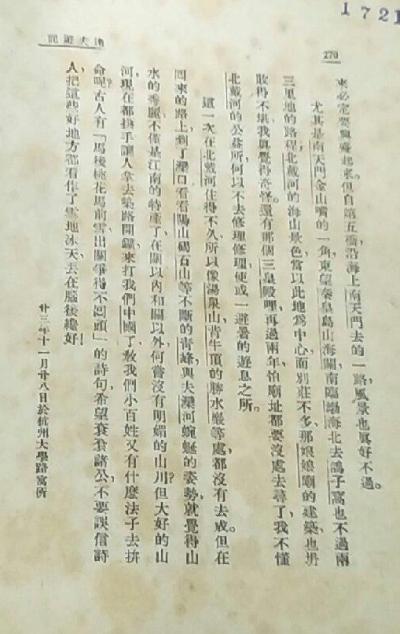 1721
270
達夫遊記
來必定要興盛起來。但自第五橋沿海上南天門去的一路，風景也真好不過。
尤其是南天門金山嘴的一角，東望秦皇島山海關，南臨渤海，北去鴿子窩也不過兩
三里地的路程，北戴河的海山景色，當以此地爲中心；而別莊不多，那娘娘廟的建築，也坍
敗得不堪，我真覺得奇怪。還有那個三皇殿哩，再過兩年，怕廟址都要沒處去尋了，我不懂
北戴河的公益所，何以不去修理修理，使成一避暑的遊息之所。
這一次在北戴河住得不久，所以像湯泉山，背牛頂的勝水巖等處，都沒有去成。但在
回來的路上，到了灤口，看看陽山碣石山等不斷的青峰，與夫灤河蜿蜒的姿勢，就覺得山
水的秀麗，不僅是江南的特產了，在關以內和關以外，何嘗沒有明媚的山川？但大好的山
河，現在都拱手讓人拿去築路開鑛，來打我們中國了，教我們小百姓又有什麼法子去拚
命呢？古人有「馬後桃花馬前雪，出關爭得不回頭」的詩句，希望袞袞諸公，不要誤信詩
人，把這些好地方都看作了雪地冰天，丟在腦後纔好！
廿三年十一月廿八日於杭州大學路寓所